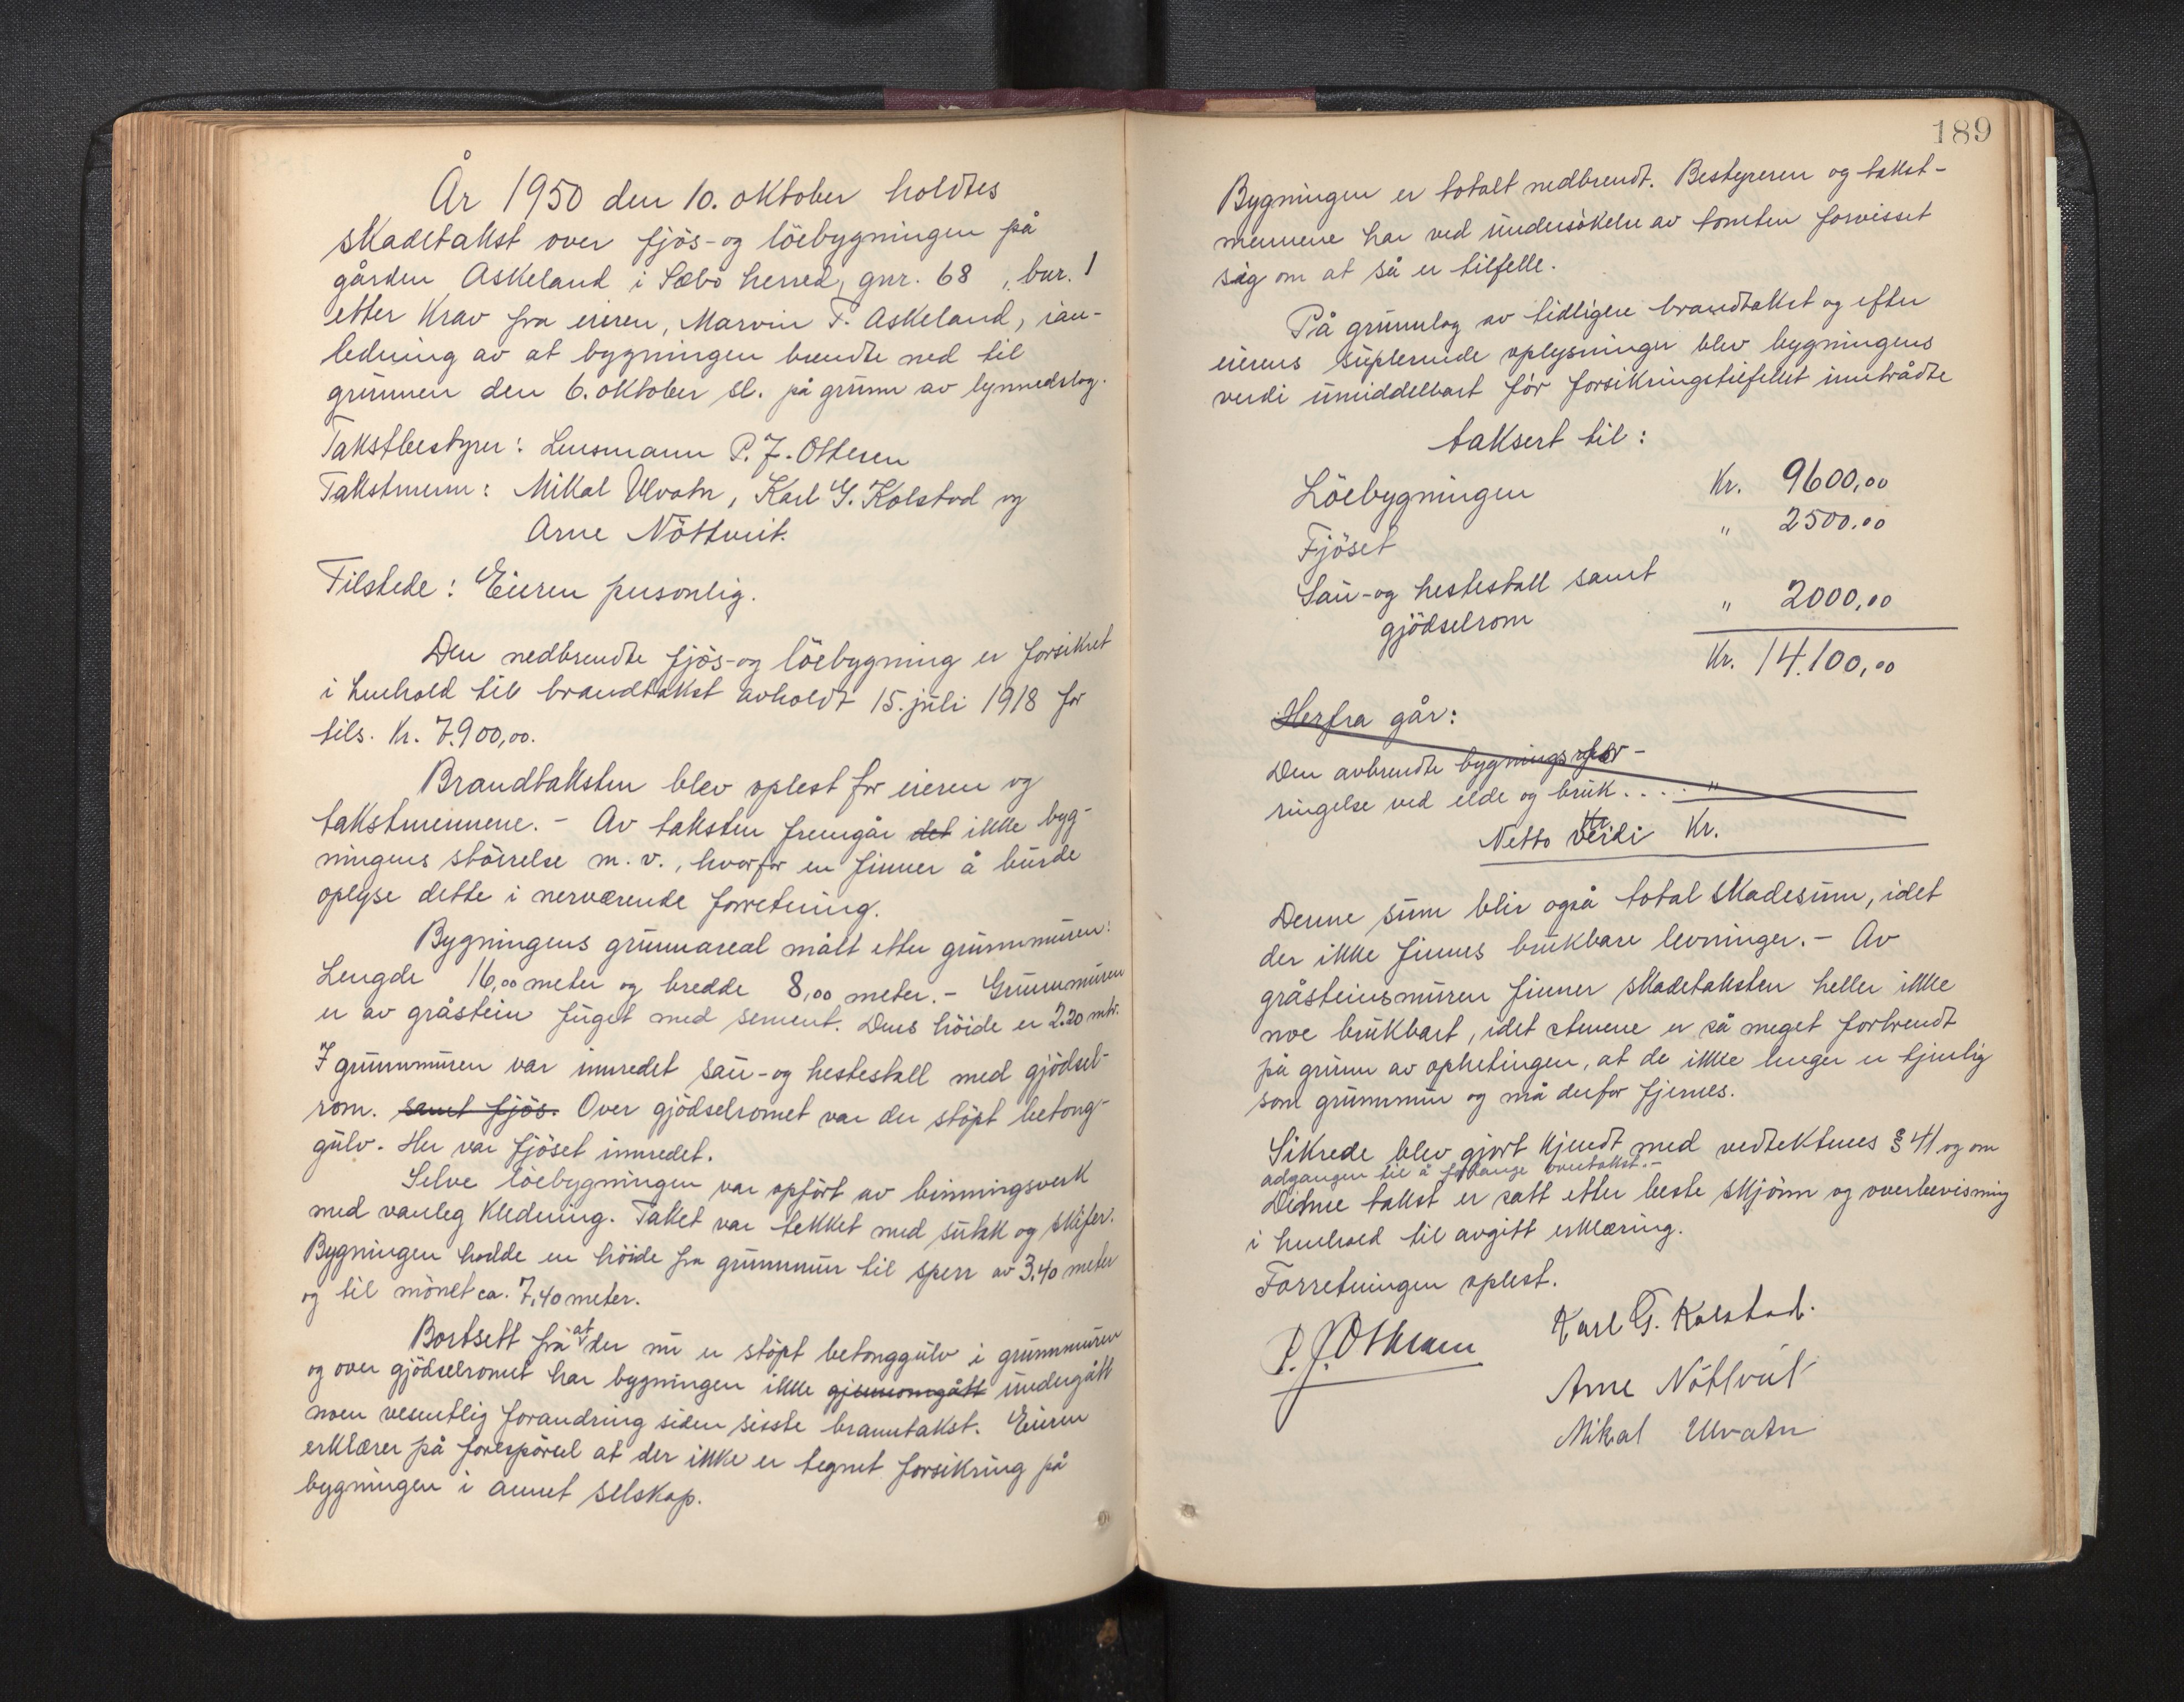 År 1950 den 10. oktober holdtes
skadetakst over fjös- og löebygningen på
gården Askeland i Sæbö herred, gnr. 68, bnr. 1
etter krav fra eieren, Marvin T. Askeland, i an-
ledning av at bygningen brendte ned til
grunnen den 6. oktober sl. på grunn av lynnedslag.
Takstbestyrer: Lensmann P. J. Ottesen
Takstmenn: Mikal Ulvatn, Karl G. Kolstad og
Arne Nöttveit.
Tilstede: Eieren personlig.
Den nedbrendte fjös- og löebygning er forsikret
i henhold til brandtakst avholdt 15. juli 1918 for
tils. kr. 7.900,00.
Brandtaksten blev oplest for eieren og
takstmennene. - Av taksten fremgår det ikke byg-
ningens störrelse m. v., hvorfor en finner å burde
oplyse dette i nerværende forretning.
Bygningens grunnareal målt etter grunnmuren:
Lengde 16,00 meter og bredde 8,00 meter. - Grunnmuren
er av gråstein fuget med sement. Dens höide er 2.20 mtr.
I grunnmuren var innredet sau- og hestestall med gjödsel-
rom. samt fjös. Over gjödselromet var der stöpt betong-
gulv. Her var fjöset innredet.
Selve löebygningen var opfört av binningsverk
med vanleg kledning. Taket var tekket med sutak og skifer.
Bygningen hadde en höide fra grunnmur til sperr av 3,40 meter
og til mönet ca. 7,40 meter.
Bortsett fra at der nu er stöpt betonggulv i grunnmuren
og over gjödselromet har bygningen ikke gjennomgått undergått
noen vesentlig forandring siden sisste branntakst. Eieren
erklærer på forespörsel at der ikke er tegnet forsikring på
bygningen i annet selskap.
189
Bygningen er totalt nedbrendt. Bestyreren og takst-
mennene har ved undersökelse av tomten forvisset
sig om at så er tilfelle.
På grunnlag av tidligere brandtakst og efter
eierens suplerende oplysninger blev bygningens
verdi umiddelbart för forsikringstilfellet inntrådte
taksert til:
Löebygningen Kr. 9600,00
Fjöset " 2500,00
Sau- og hestestall samt
gjödselrom " 2000,00
Kr. 14.100,00
Herfra går:
Den avbrendte bygnings for-
ringelse ved elde og bruk.... "
Netto verdi Kr.
Denne sum blir også total skadesum, idet
der ikke finnes brukbare levninger. - Av
gråsteinsmuren finner skadetaksten heller ikke
noe brukbart, idet stenene er så meget forbrendt
på grunn av ophetingen, at de ikke lenger er tjenlig
som grunnmur og må derfor fjernes.
Sikrede blev gjort kjendt med vedtektenes § 41 og om
adgangen til å forlange overtakst. -
Denne takst er satt etter beste skjönn og overbevisning
i henhold til avgitt erklæring.
Forretningen oplest.
P. J. Ottesen Karl G. Kolstad.
Arne Nöttveit
Mikal Ulvatn